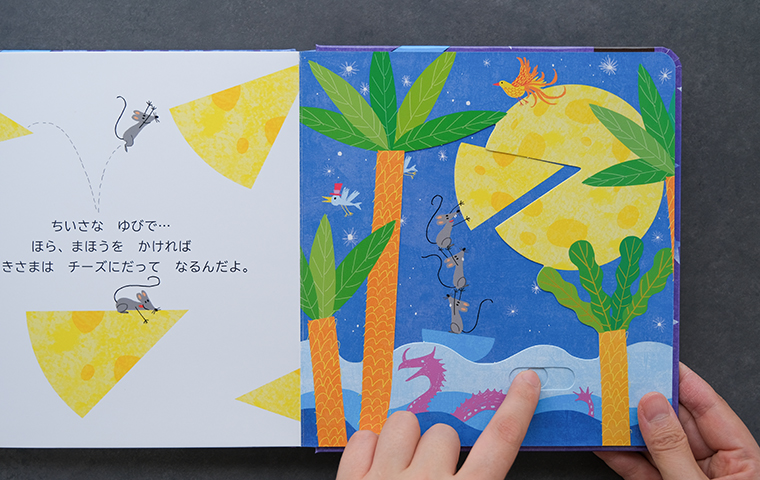 ちいさな　ゆびで…
ほら、まほうを　かければ
きさまは　チーズにだって　なるんだよ。